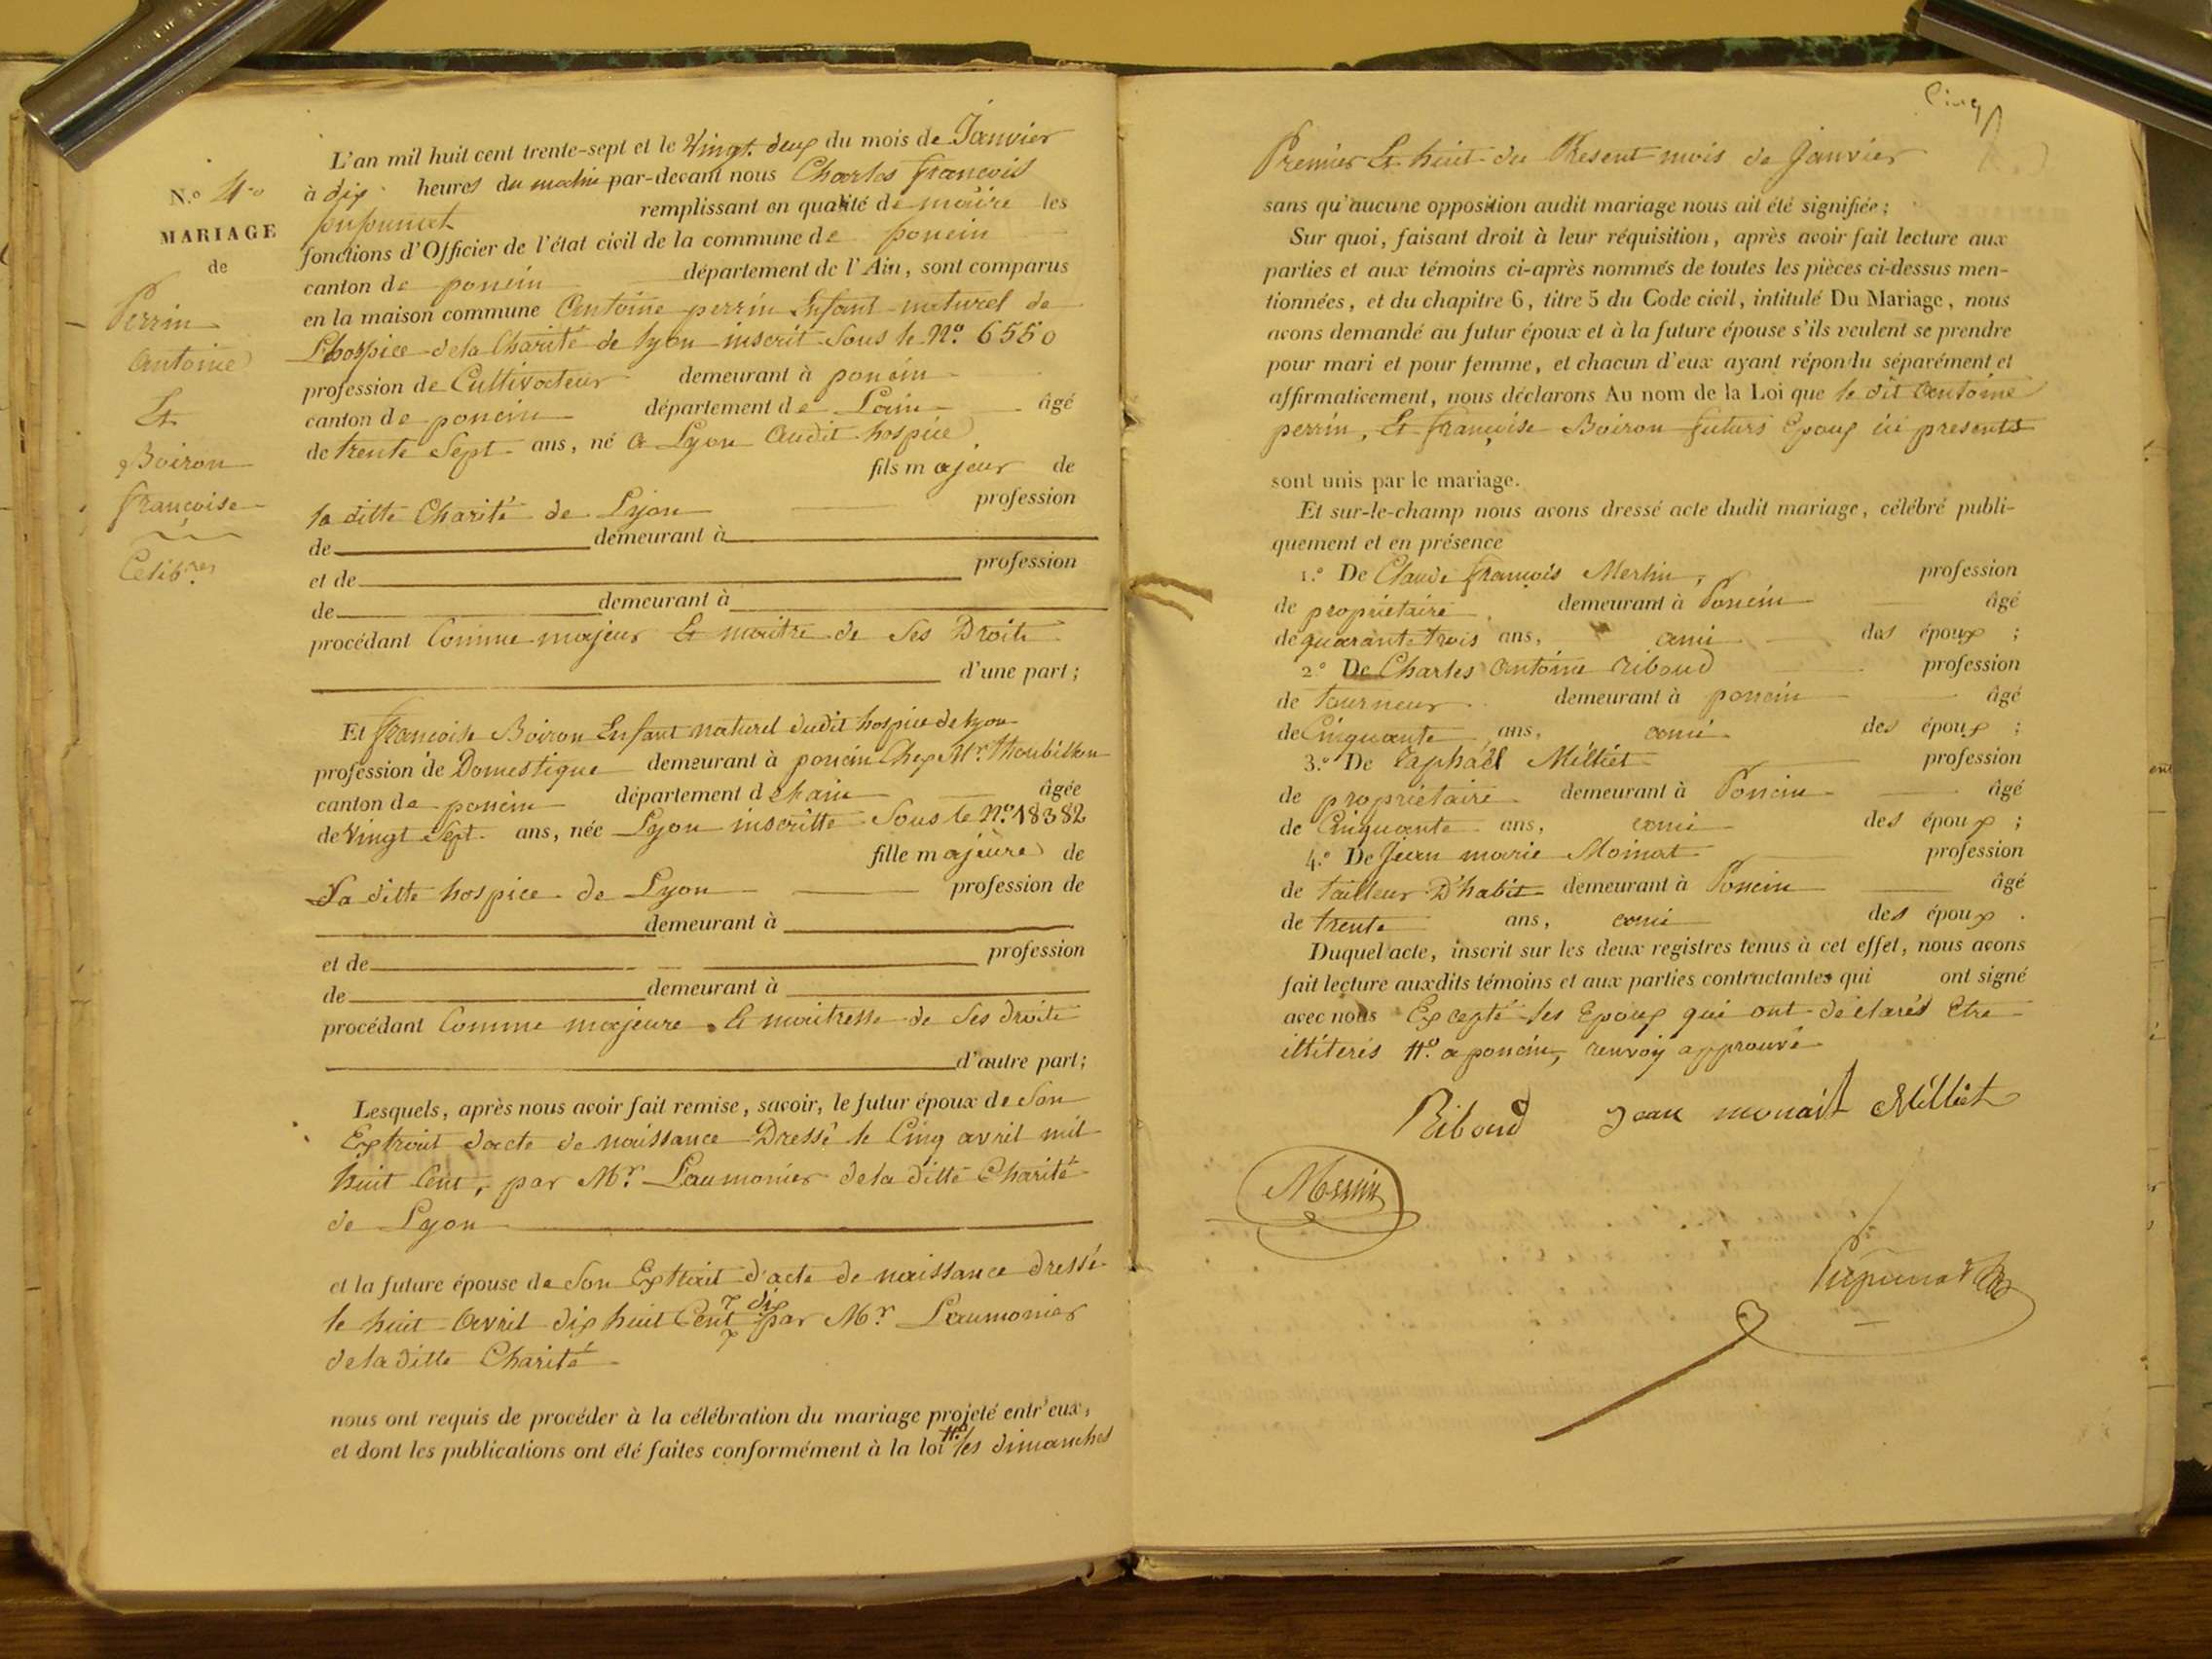 N.º 4.º
MARIAGE
de
Perrin
antoine
Et
Boiron
françoise
Celib.res
L'an mil huit cent trente-sept et le Vingt deux du mois de Janvier
à dix heures du matin par-devant nous Charles françois
remplissant en qualité de maire les
fonctions d'Officier de l'état civil de la commune de poncin
canton de poncin département de l'Ain, sont comparus
en la maison commune Antoine perrin Enfant naturel de
L'hospice de la Charité de lyon inscrit Sous le N.º 6550
profession de Cultivateur demeurant à poncin
canton de poncin département de Lain âgé
de trente Sept ans, né a Lyon audit hospice
fils majeur de
la ditte Charité de Lyon profession
de demeurant à
et de profession
de demeurant à
procédant Comme majeur Et maitre de Ses Droits
d'une part;
Et françoise Boiron Enfant naturel dudit hospice de lyon
profession de Domestique demeurant à poncin Chez Mr.
canton de poncin département de Lain âgée
de Vingt Sept ans, née Lyon inscritte Sous le N.º 18382
fille majeure de
La ditte hospice de Lyon profession de
demeurant à
et de profession
de demeurant à
procédant Comme majeure Et maitresse de Ses droits
d'autre part;
Lesquels, après nous avoir fait remise, savoir, le futur époux de Son
Extrait d'acte de naissance Dressé le Cinq avril mil
huit Cent, par Mr. Laumonier de la ditte Charité
de Lyon
et la future épouse de Son Extrait d'acte de naissance dressé
le huit Avril dix huit Cent dix par Mr. Laumonier
de la ditte Charité
nous ont requis de procéder à la célébration du mariage projeté entr'eux,
et dont les publications ont été faites conformément à la loi #.º les dimanches
Cinq
Premier Et huit du Present mois de Janvier
sans qu'aucune opposition audit mariage nous ait été signifiée;
Sur quoi, faisant droit à leur réquisition, après avoir fait lecture aux
parties et aux témoins ci-après nommés de toutes les pièces ci-dessus men-
tionnées, et du chapitre 6, titre 5 du Code civil, intitulé Du Mariage, nous
avons demandé au futur époux et à la future épouse s'ils veulent se prendre
pour mari et pour femme, et chacun d'eux ayant répondu séparément et
affirmativement, nous déclarons Au nom de la Loi que le dit Antoine
perrin, Et françoise Boiron futurs Epoux ici presents
sont unis par le mariage.
Et sur-le-champ nous avons dressé acte dudit mariage, célébré publi-
quement et en présence
1.º De Claude françois Merlin, profession
de propriétaire demeurant à Poncin âgé
de quarante trois ans, ami des époux ;
2.º De Charles Antoine riboud profession
de tourneur demeurant à poncin âgé
de Cinquante ans, ami des époux ;
3.º De raphaël Milliet profession
de propriétaire demeurant à Poncin âgé
de Cinquante ans, ami des époux ;
4.º De Jean marie Moinat profession
de tailleur D'habit demeurant à Poncin âgé
de trente ans, ami des époux .
Duquel acte, inscrit sur les deux registres tenus à cet effet, nous avons
fait lecture auxdits témoins et aux parties contractantes qui ont signé
avec nous Excepté les Epoux qui ont déclarés Etre
illiterés #.º a poncin, renvoy approuvé
Riboud Jean monait Milliet